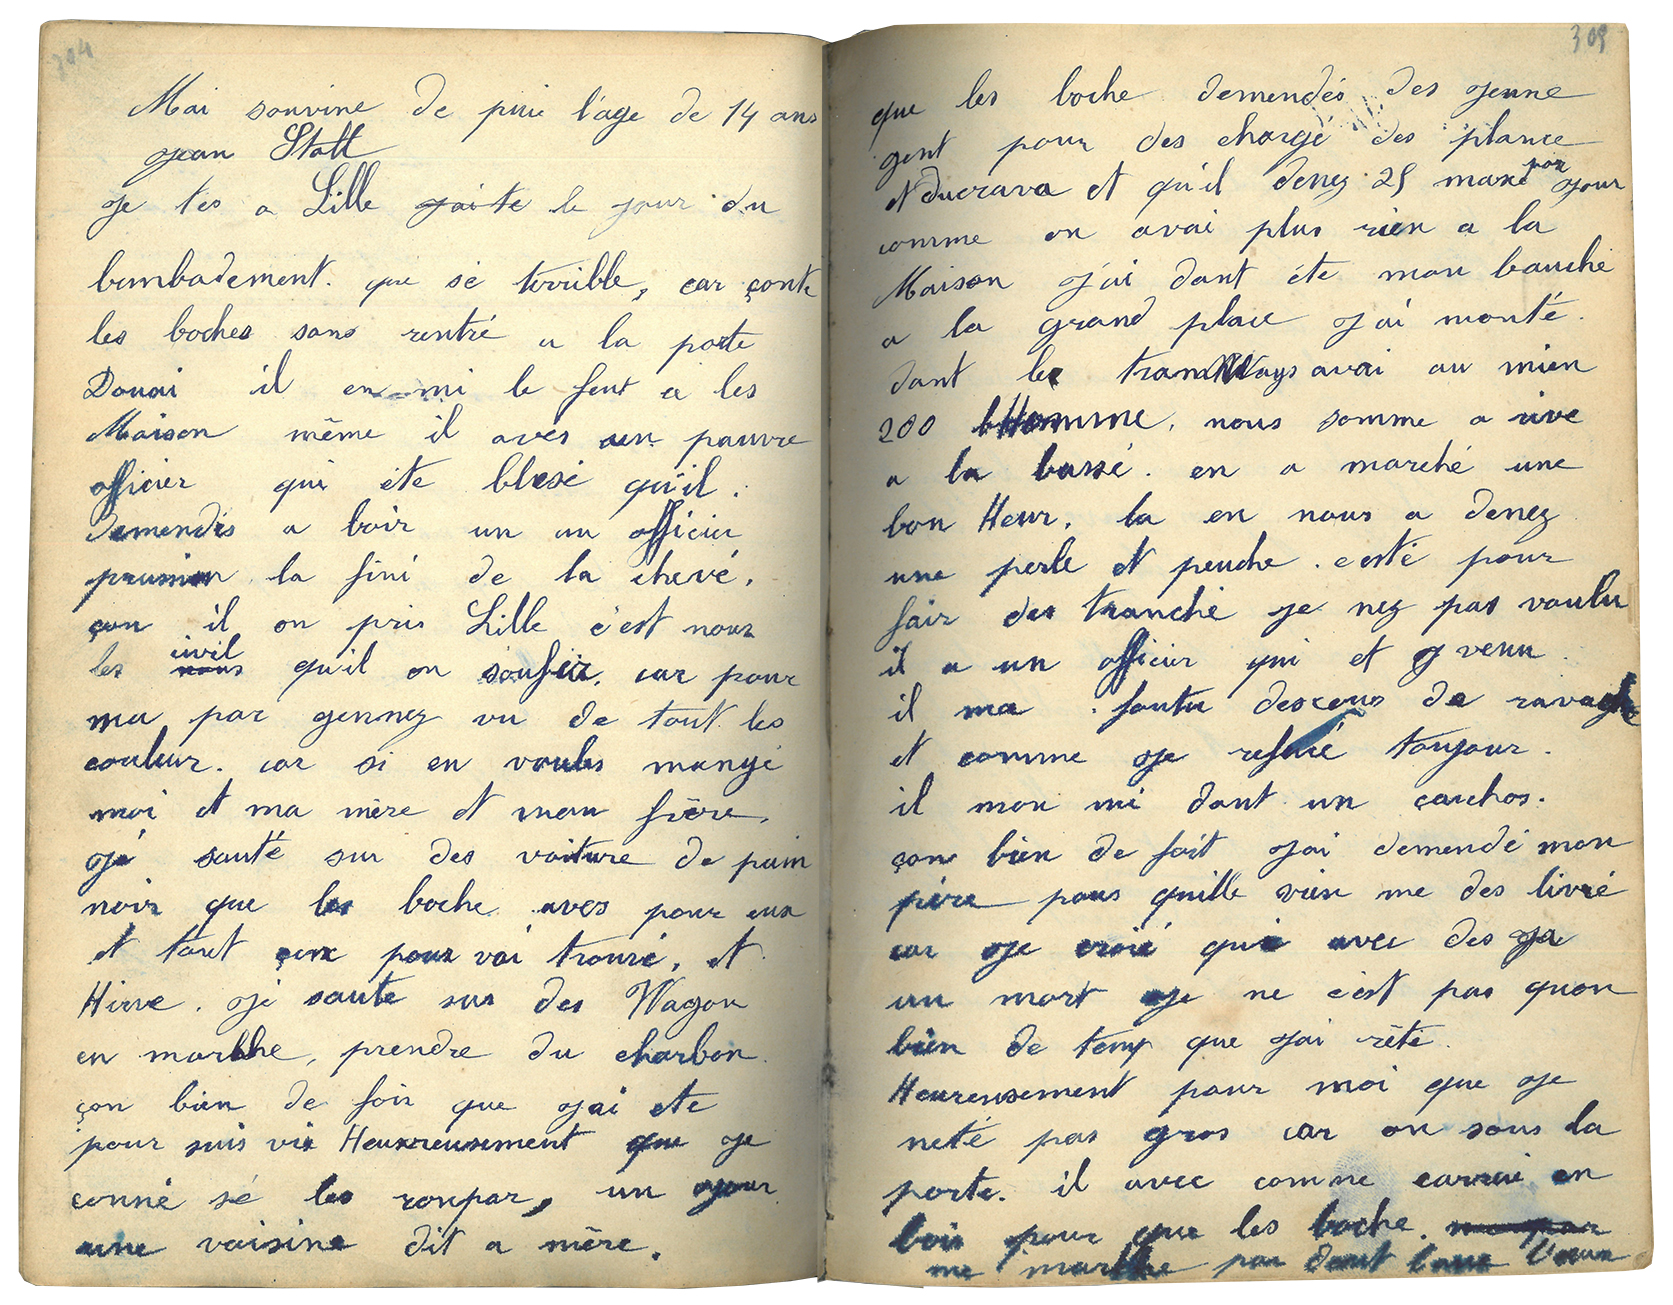 304
Mai souvine de puie l'age de 14 ans
Jean Statt
Je tes a Lille jai te le jour du
bombadement. que sé terrible, car çont
les boches sans rentré a la porte
Douai il en mi le feut a les
Maison même il aves un pauvre
officier qui éte blesé qu'il.
demendés a boir un un officier
prusien la fini de la chevé.
çon il on pris Lille c'est nous
les nous civil qu'il on soufrir. car pour
ma par gennez vu de tout les
couleur. car si en voules mangé
moi et ma mère et mon frère,
jé sauté sur des voiture de pain
noir que les boche aves pour eux
et tout çeux pour voi trouvé, et
Hiver. jé saute sur des Wagon
en marche, prendre du charbon.
çon bien de foir que jai ete
pour suis vie Heuxreusement que je
conné sé les ronpar, un jour
une voisine dit a mère.
305
que les boche demendés des jeune
gent pour des chargé des plance
et ducrava et qu'il denez 25 maxe par jour
comme on avai plus rien a la
Maison j'ai dant éte mon bauché
a la grand place j'ai monté.
dant les tramWays avai au mien
200 bHomme. nous somme a rive
a la bassé. en a marché une
bon Heur. la en nous a denez
une perle et peuche. c'eté pour
fair des tranché je nez pas voulu
il a un officier qui et venu
il ma foutu desceus de ravagh
et comme je refusé toujour.
il mon mi dant un cauchos.
çon bien de foit jai demendé mon
père pous quille vien me des livré
car je croié qui avec des ja
un mort je ne c'est pas quon
bien de temp que jai rêté.
Heureusement pour moi que je
neté pas gros car on sous la
porte. il avec comme carrai en
bois pour que les boche. me par
me marche par dant leur vaux